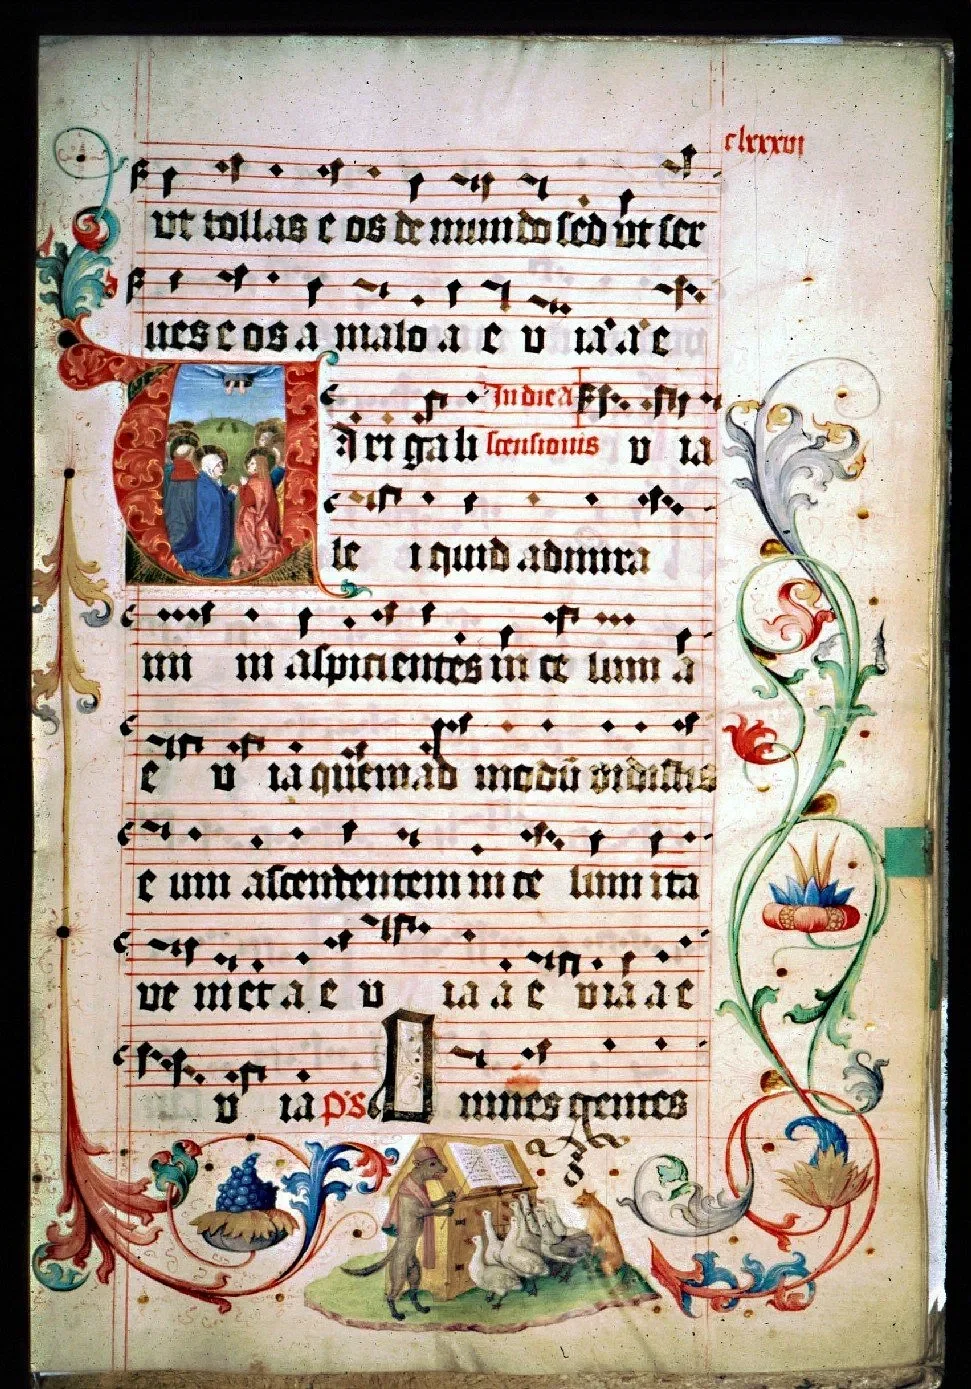 clxxxvi
ut tollas e os de mundo sed ut ser
ues e os a malo a e v ia a e
In die a
V iri gali scensionis v ia
le i quid admira
mi ni aspicientes in ce lum a
e v ia quemad modū vidistis
e um ascendentem in ce lum ita
ve niet a e v ia a e via a e
v ia p̄s O mnes gentes